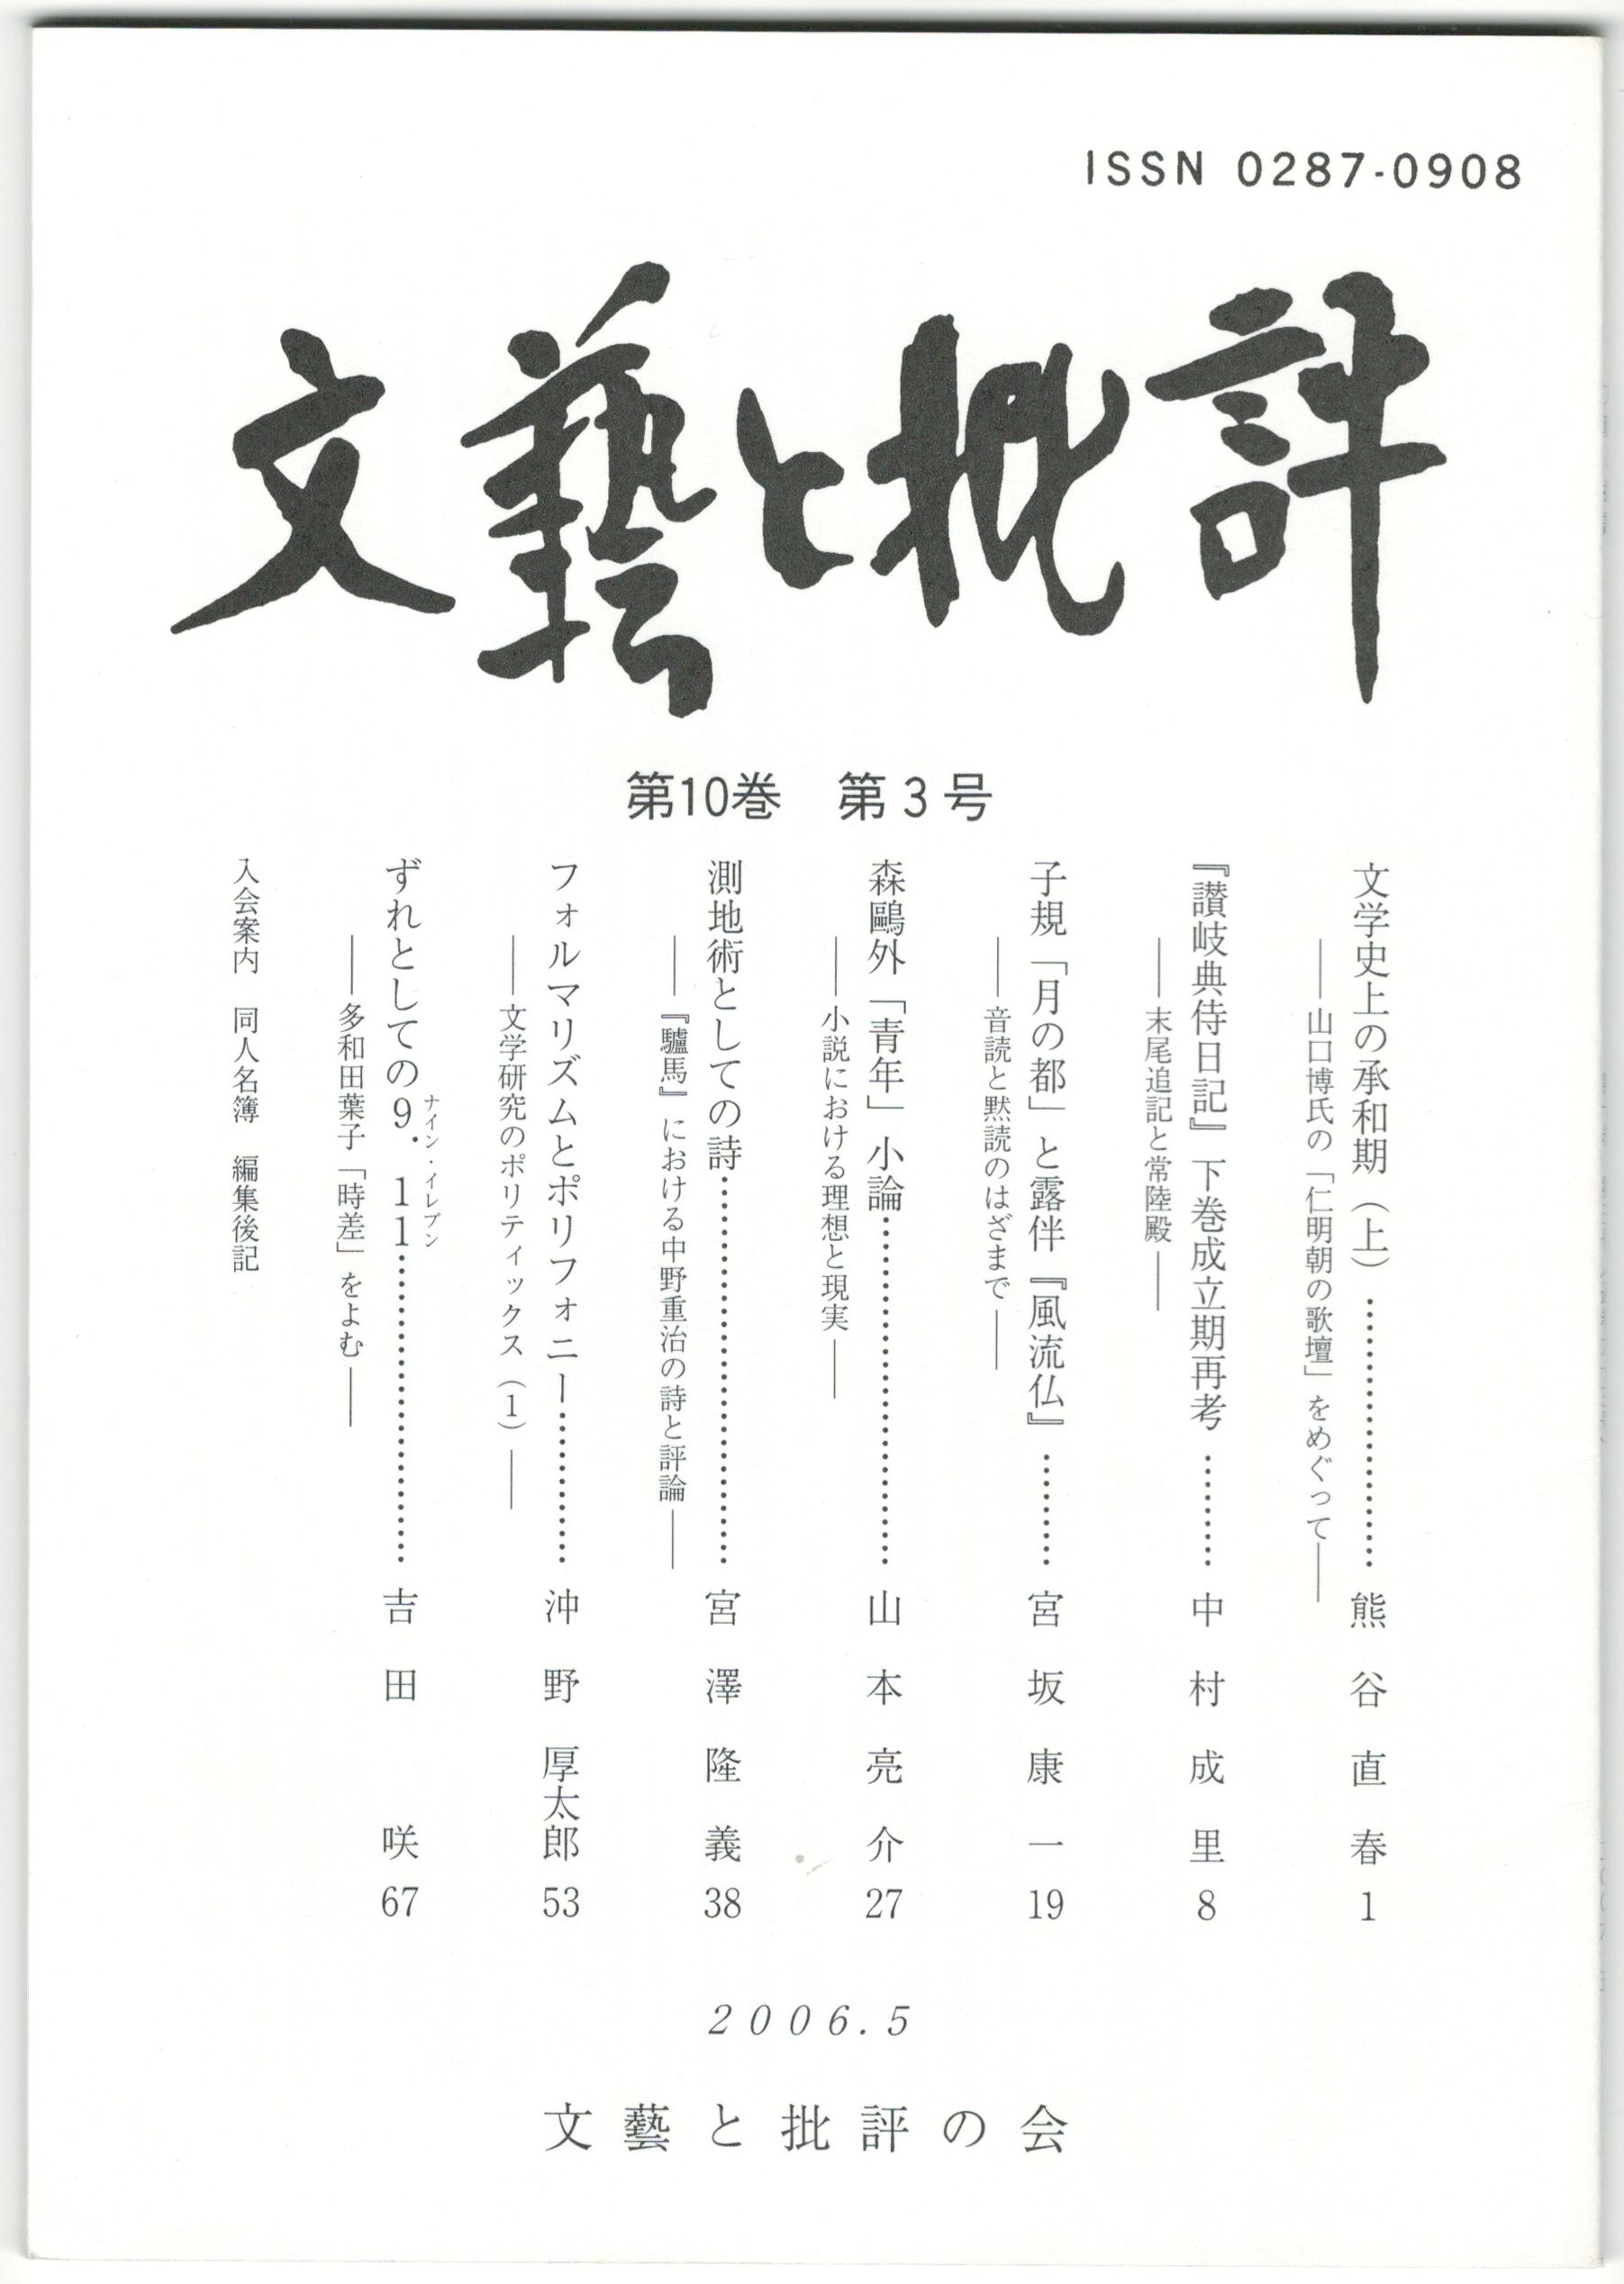 ISSN 0287-0908
文藝と批評
第10巻 第3号
文学史上の承和期（上）………………熊谷直春 1
――山口博氏の「仁明朝の歌壇」をめぐって――
『讃岐典侍日記』下巻成立期再考………中村成里 8
――末尾追記と常陸殿――
子規「月の都」と露伴『風流仏』………宮坂康一 19
――音読と黙読のはざまで――
森鷗外「青年」小論………………………山本亮介 27
――小説における理想と現実――
測地術としての詩…………………………宮澤隆義 38
――『驢馬』における中野重治の詩と評論――
フォルマリズムとポリフォニー…………沖野厚太郎 53
――文学研究のポリティックス（1）――
ナイン・イレブン
ずれとしての9．11………………………吉田咲 67
――多和田葉子「時差」をよむ――
入会案内 同人名簿 編集後記
2006.5
文藝と批評の会